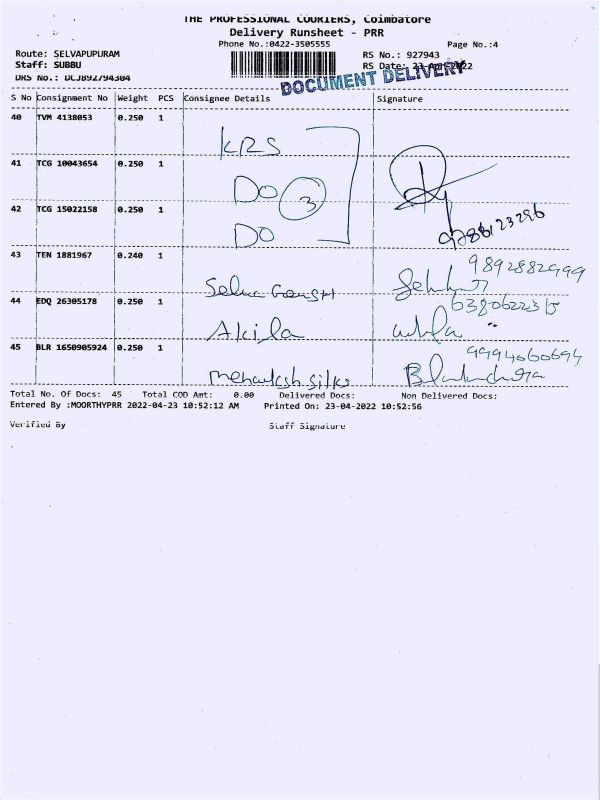 THE PROFESSIONAL COURIERS, Coimbatore
Delivery Runsheet - PRR
Phone No.:0422-3505555
Page No.:4
Route: SELVAPUPURAM
RS No.: 927943
Staff: SUBBU
RS Date: 23-Apr-2022
DRS No.: DCJB92794304
DOCUMENT DELIVERY
S No Consignment No Weight PCS Consignee Details Signature
40 TVM 4138053 0.250 1
KRS
41 TCG 10043654 0.250 1
DO 3
42 TCG 15022158 0.250 1
DO
43 TEN 1881967 0.240 1
9892882999
44 EDQ 26305178 0.250 1
Akila
45 BLR 1650905924 0.250 1
9994060694
Total No. Of Docs: 45 Total COD Amt: 0.00 Delivered Docs: Non Delivered Docs:
Entered By :MOORTHYPRR 2022-04-23 10:52:12 AM Printed On: 23-04-2022 10:52:56
Verified By Staff Signature